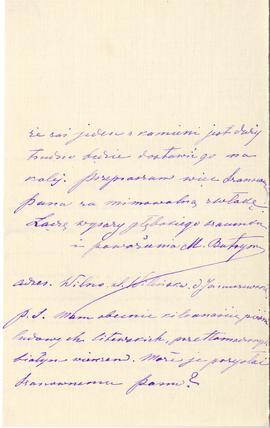 że zaś jeden z kamieni jest duży
trudno będzie dostawić go na
kolej. Przepraszam więc Szanow.
Pana za mimowolną zwłokę.
Łączę wyrazy głębokiego szacunku
i poważania M.
adres. Wilno. ul.
p. S. Mam obecnie kilkanaście pieśni
ludowych litewskich, przetłomaczonych
białym wierszem. Może je przysłać
szanownemu panu?